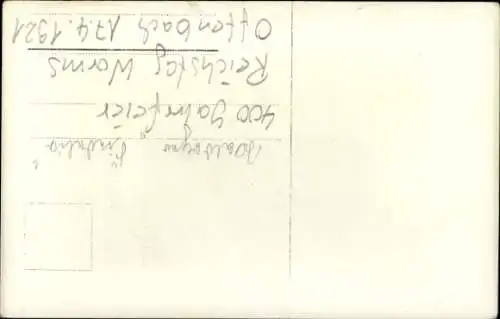 Offenbach 17.4.1921
Reichstag Worms
400 Jahrfeier